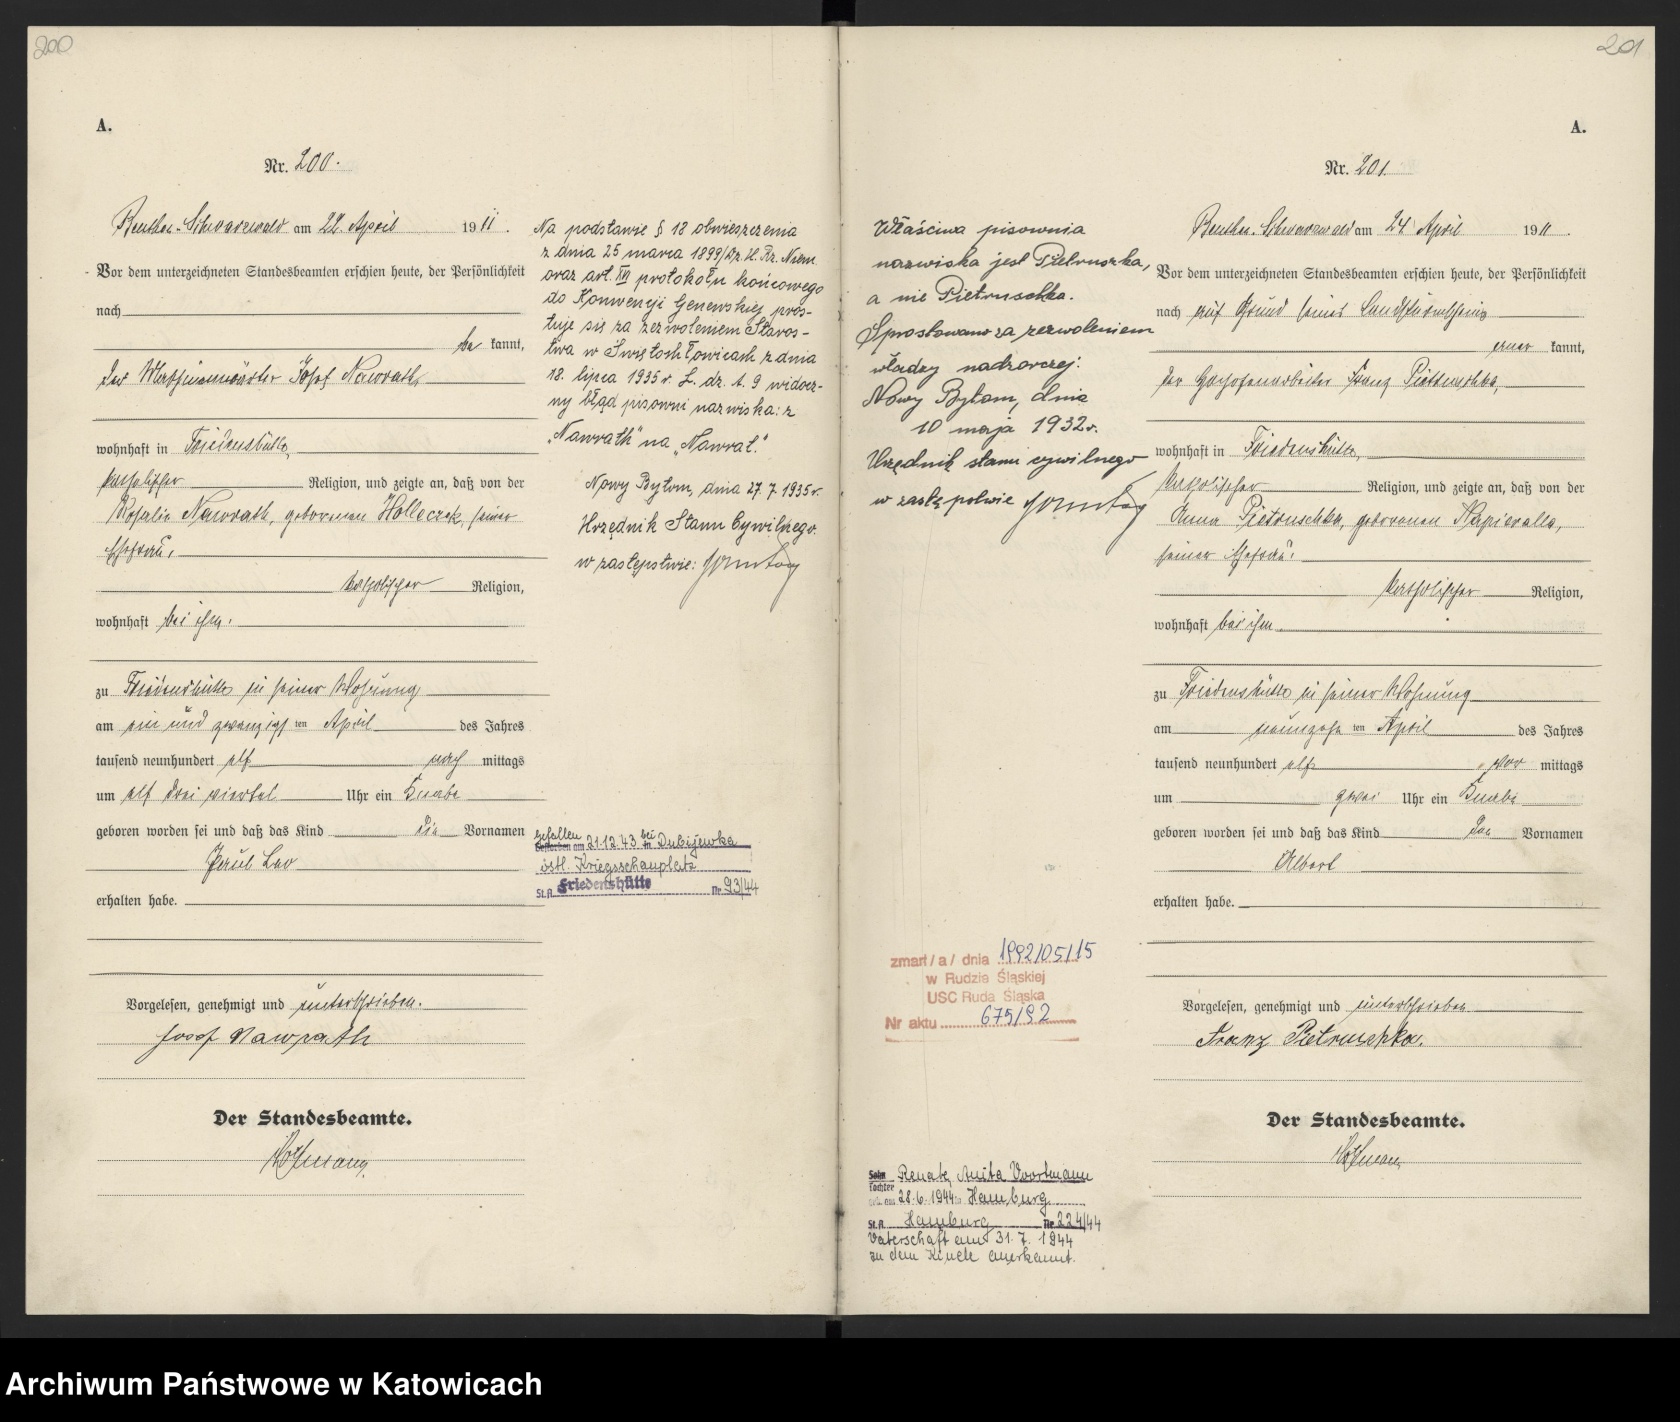 200
A.
Nr. 200.
Beuthen-Schwarzwald am 22. April 1911.
Vor dem unterzeichneten Standesbeamten erschien heute, der Persönlichkeit
nach
be kannt,
der Maschinenwärter Josef Nawrath,
wohnhaft in Friedenshütte,
katholischer Religion, und zeigte an, daß von der
Rosalie Nawrath, geborenen Holleczek, seiner
Ehefrau,
katholischer Religion,
wohnhaft bei ihm,
zu Friedenshütte in seiner Wohnung
am ein und zwanzigsten April des Jahres
tausend neunhundert elf nach mittags
um elf drei viertel Uhr ein Knabe
geboren worden sei und daß das Kind die Vornamen
Paul Leo
erhalten habe.
Vorgelesen, genehmigt und unterschrieben.
Josef Nawrath
Der Standesbeamte.
Na podstawie § 18 obwieszczenia
z dnia 25 marca 1899/Dz. U. Rz. Niem.
oraz art. XVI protokołu końcowego
do Konwencji Genewskiej pros-
tuje się za zezwoleniem Staros-
twa w Świętochłowicach z dnia
18. lipca 1935 r. L. dz. A. 9 widocz-
ny błąd pisowni nazwiska: z
„Nawrath" na „Nawrat."
Nowy Bytom, dnia 27. 7. 1935 r.
Urzędnik Stanu Cywilnego.
w zastępstwie:
gefallen
Gestorben am 21.12.43 bei Dubijewka
östl. Kriegsschauplatz
St.A. Friedenshütte Nr. 93/44
201
A.
Nr. 201.
Właściwa pisownia
nazwiska jest Pietruszka,
a nie Pietruschka.
Sprostowano za zezwoleniem
władzy nadzorczej:
Nowy Bytom, dnia
10 maja 1932 r.
Urzędnik stanu cywilnego
w zastępstwie
zmarł /a/ dnia 1992/05/15
w Rudzie Śląskiej
USC Ruda Śląska
Nr aktu 675/92
Sohn Renate, Anita Voortmann
Tochter
geb. am 28.6.1944 in Hamburg
St.A. Hamburg Nr. 224/44
Vaterschaft am 31.7.1944
zu dem Kinde anerkannt.
Beuthen-Schwarzwald am 24. April 1911.
Vor dem unterzeichneten Standesbeamten erschien heute, der Persönlichkeit
nach auf Grund seines Landsturmscheins
aner kannt,
der Hochofenarbeiter Franz Pietruschka,
wohnhaft in Friedenshütte,
katholischer Religion, und zeigte an, daß von der
Anna Pietruschka, geborenen Napieralla,
seiner Ehefrau,
katholischer Religion,
wohnhaft bei ihm,
zu Friedenshütte in seiner Wohnung
am neunzehnten April des Jahres
tausend neunhundert elf vor mittags
um zwei Uhr ein Knabe
geboren worden sei und daß das Kind den Vornamen
Albert
erhalten habe.
Vorgelesen, genehmigt und unterschrieben.
Franz Pietruschka.
Der Standesbeamte.
Archiwum Państwowe w Katowicach